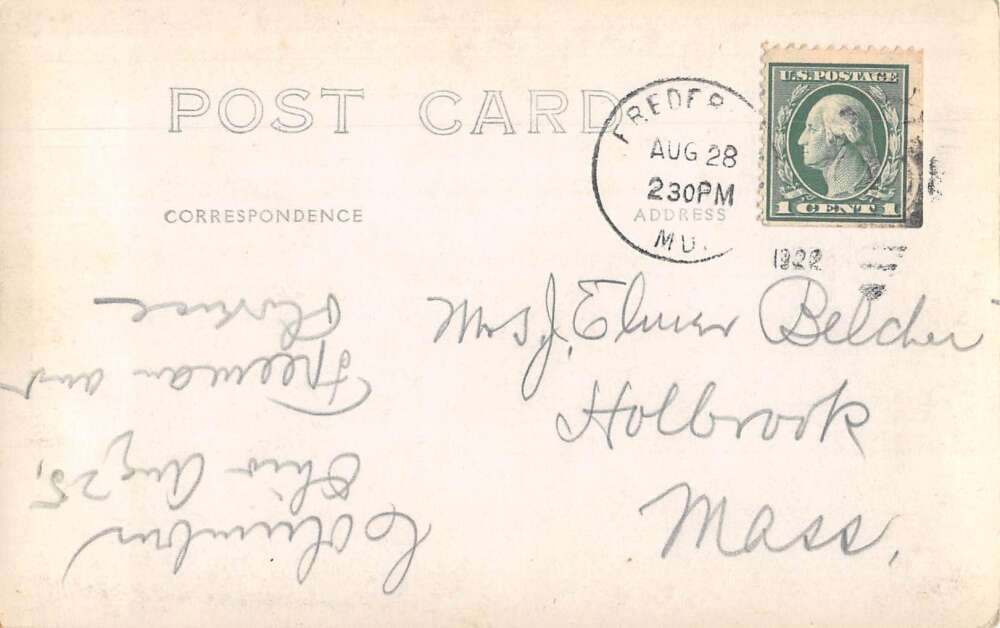 POST CARD
U.S. POSTAGE
1 CENT 1
FREDER
AUG 28
230PM
MD.
1922
CORRESPONDENCE
ADDRESS
Mrs J. Elmer Belcher
Holbrook
Mass.
Columbus
Ohio Aug 25,
Freeman and
Florence